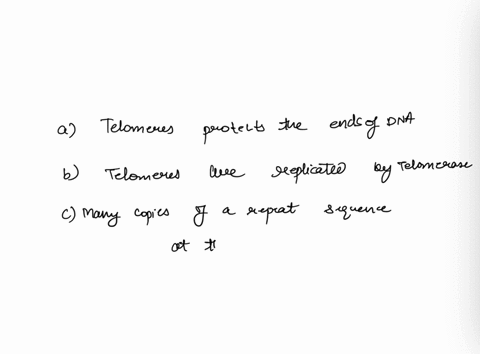 a) Telomeres protects the ends of DNA
b) Telomeres are replicated by Telomerase
c) Many copies of a repeat sequence
at t